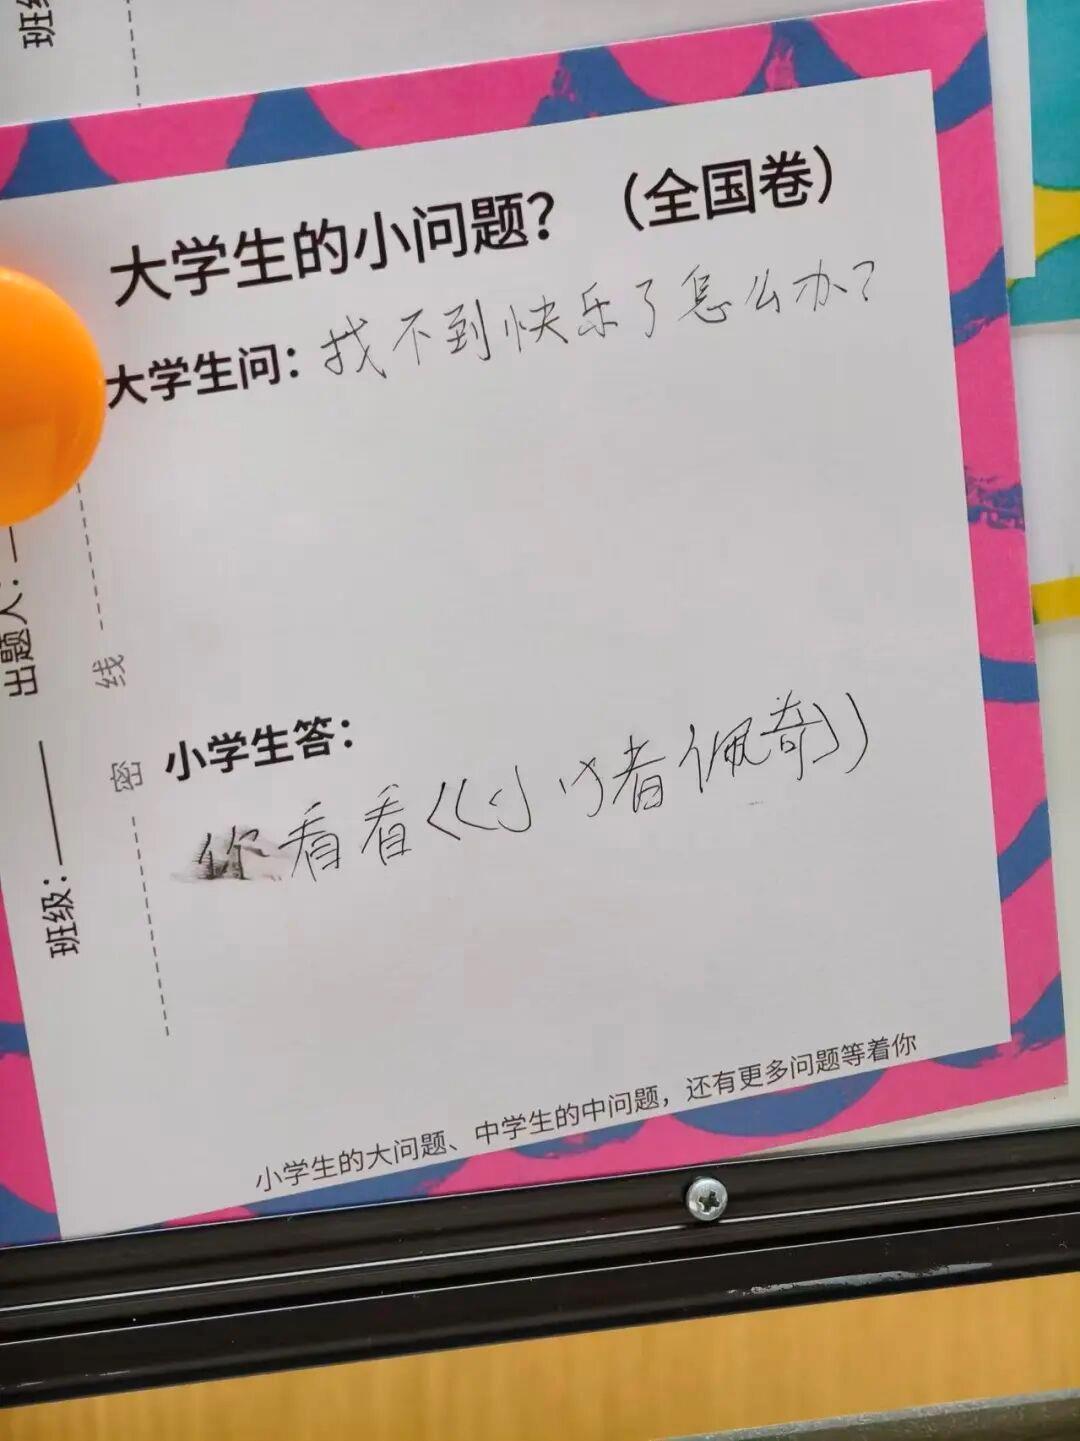 班级
大学生的小问题？（全国卷）
大学生问：找不到快乐了怎么办？
小学生答：
你看看《小猪佩奇》
小学生的大问题、中学生的中问题，还有更多问题等着你
出题人：
班级：
线
密